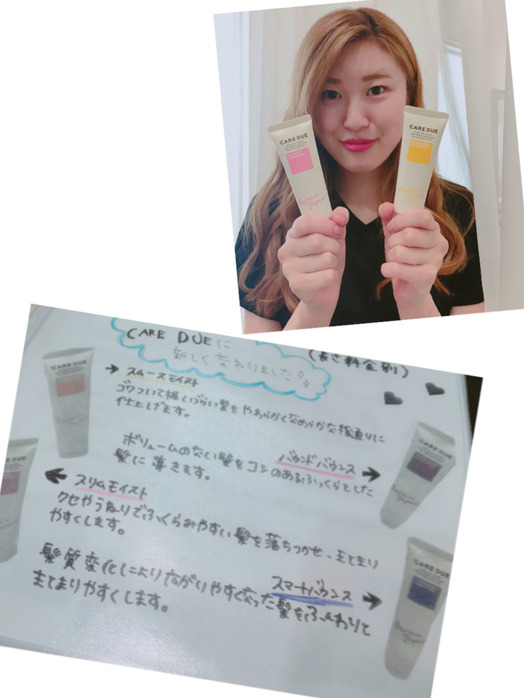 CARE DUE
CARE DUE
CARE DUEに
新しく変わりました!
(長さ料金別)
CARE DUE
スムースモイスト
ゴワついて扱いづらい髪をやわらかくなめらかな指通りに
仕上げます。
ボリュームのない髪をコシのあるふっくらとした
バウンドバウンス
髪に導きます。
CARE DUE
スリムモイスト
クセやうねりでふくらみやすい髪を落ちつかせ、まとまり
やすくします。
髪質変化により広がりやすくなった髪をふんわりと
スマートバウンス
まとまりやすくします。
CARE DUE